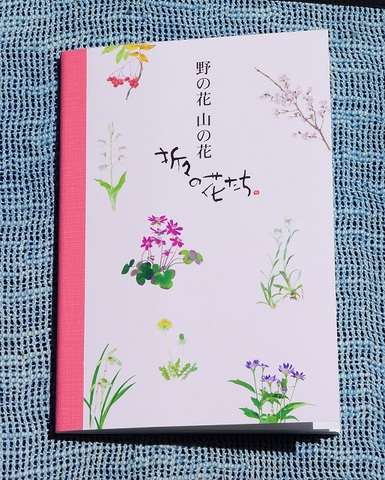 野の花 山の花
折々の花たち